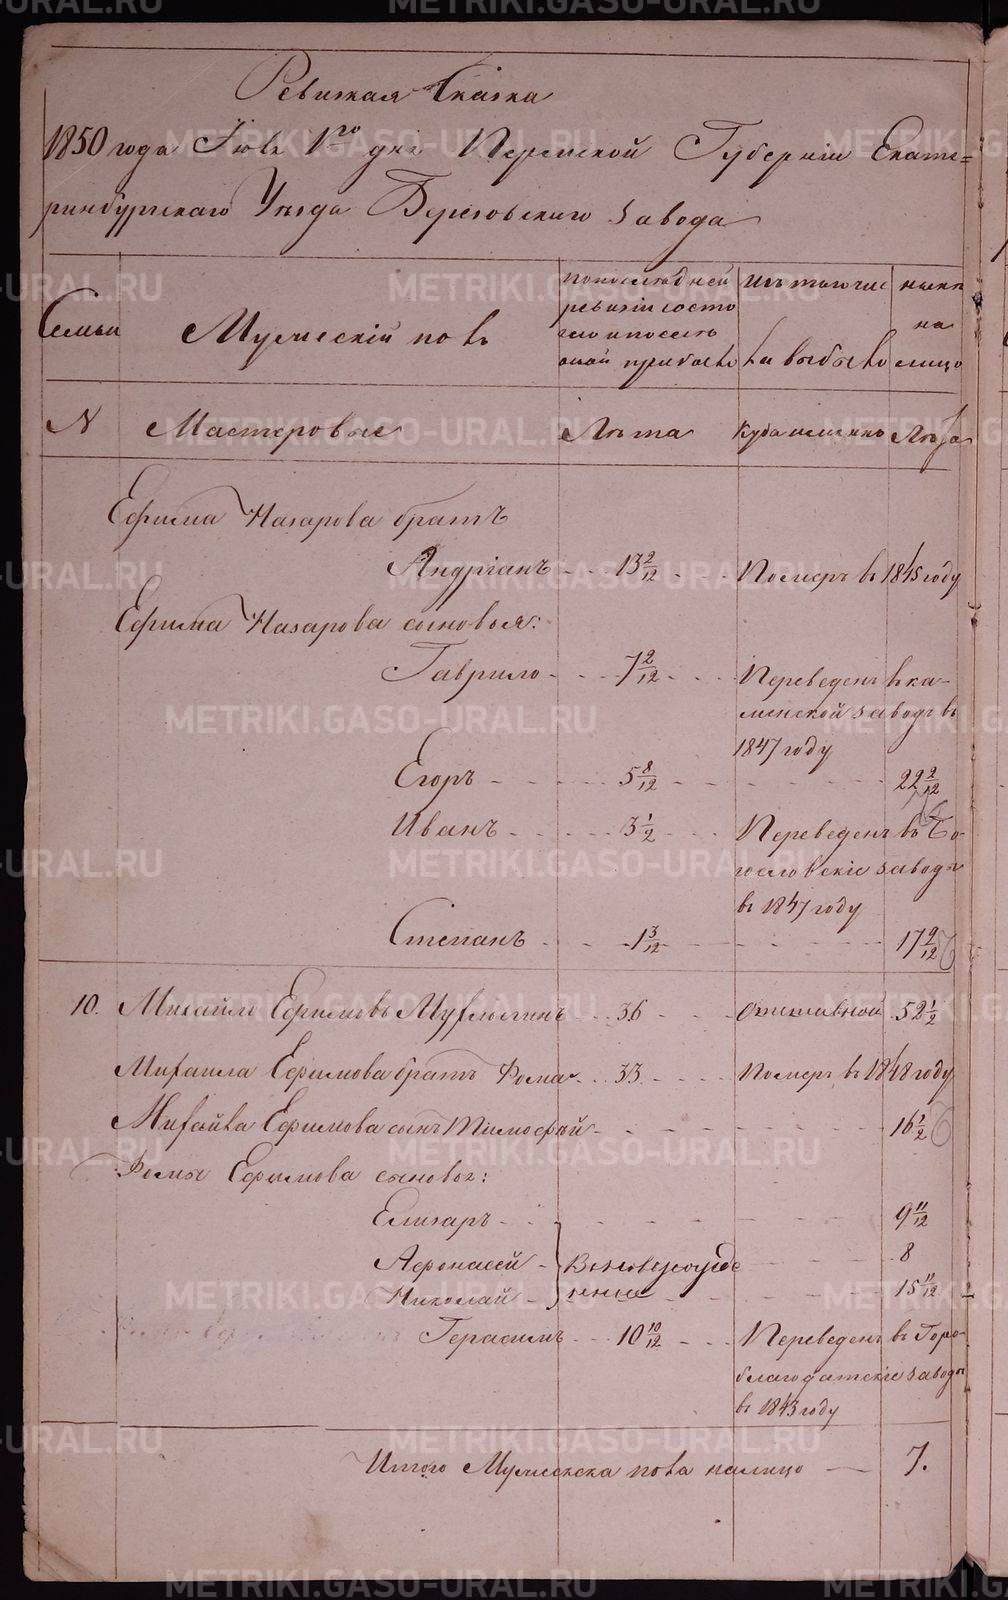 Ревизкая Сказка
1850 года Июля 1го дня Пермской Губернии Екате=
ринбургскаго Уезда Березовскаго завода
Семьи
Мужескій полъ
По последней ревизіи состояло и после оной прибыло
Изъ того числа выбыло
ныне на лицо
N
Мастеровые
Лѣта
Куда именно
Лѣта
Ефима Назарова братъ
Андріанъ 13 2/12 Померъ въ 1845 году
Ефима Назарова сыновья:
Гаврило 7 2/12 Переведенъ въ ка-
менской заводъ въ
1847 году
Егоръ 5 8/12 22 2/12
Иванъ 3 1/2 Переведенъ въ Бо-
гословскіе заводы
въ 1847 году
Степанъ 1 3/12 17 9/12
10. Михайло Ефимовъ 36 52 1/2
Михаила Ефимова братъ Фома 33 Померъ въ 1848 году
Михайла Ефимова сынъ Тимофей 16 1/2
Фомы Ефимова сыновья:
Елизаръ 9 11/12
Афонасей 8
Николай 15 11/12
Герасимъ 10 10/12 Переведенъ въ Горо-
благодатскіе заводы
въ 1843 году
Итого Мужеска пола налицо 7.
METRIKI.GASO-URAL.RU